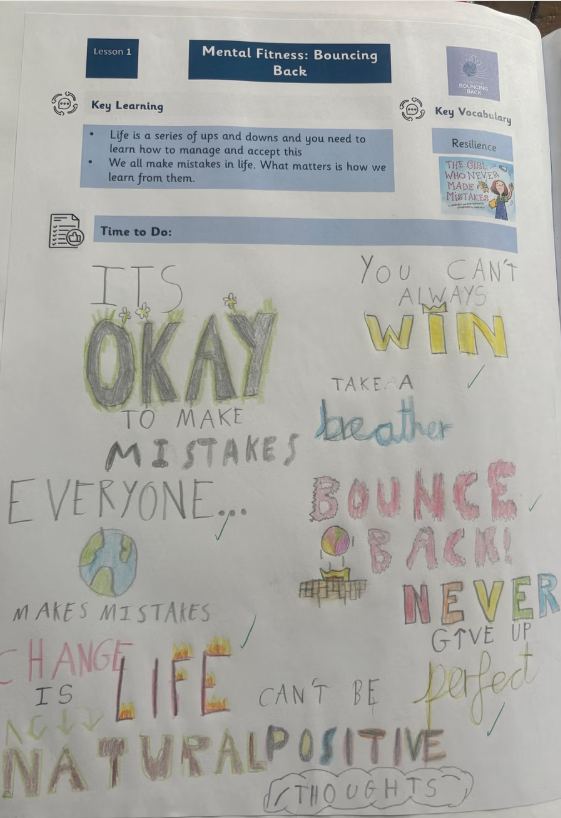 Lesson 1
Mental Fitness: Bouncing
Back
BOUNCING
BACK
Key Learning
Key Vocabulary
• Life is a series of ups and downs and you need to
learn how to manage and accept this
• We all make mistakes in life. What matters is how we
learn from them.
Resilience
THE GIRL
WHO NEVER
MADE
MISTAKES
Time to Do:
ITS
OKAY
TO MAKE
MISTAKES
YOU CAN'T
ALWAYS
WIN
TAKE A
breather
EVERYONE...
MAKES MISTAKES
BOUNCE
BACK!
NEVER
GIVE UP
CHANGE
IS
NATURAL
LIFE
CAN'T BE
perfect
POSITIVE
THOUGHTS